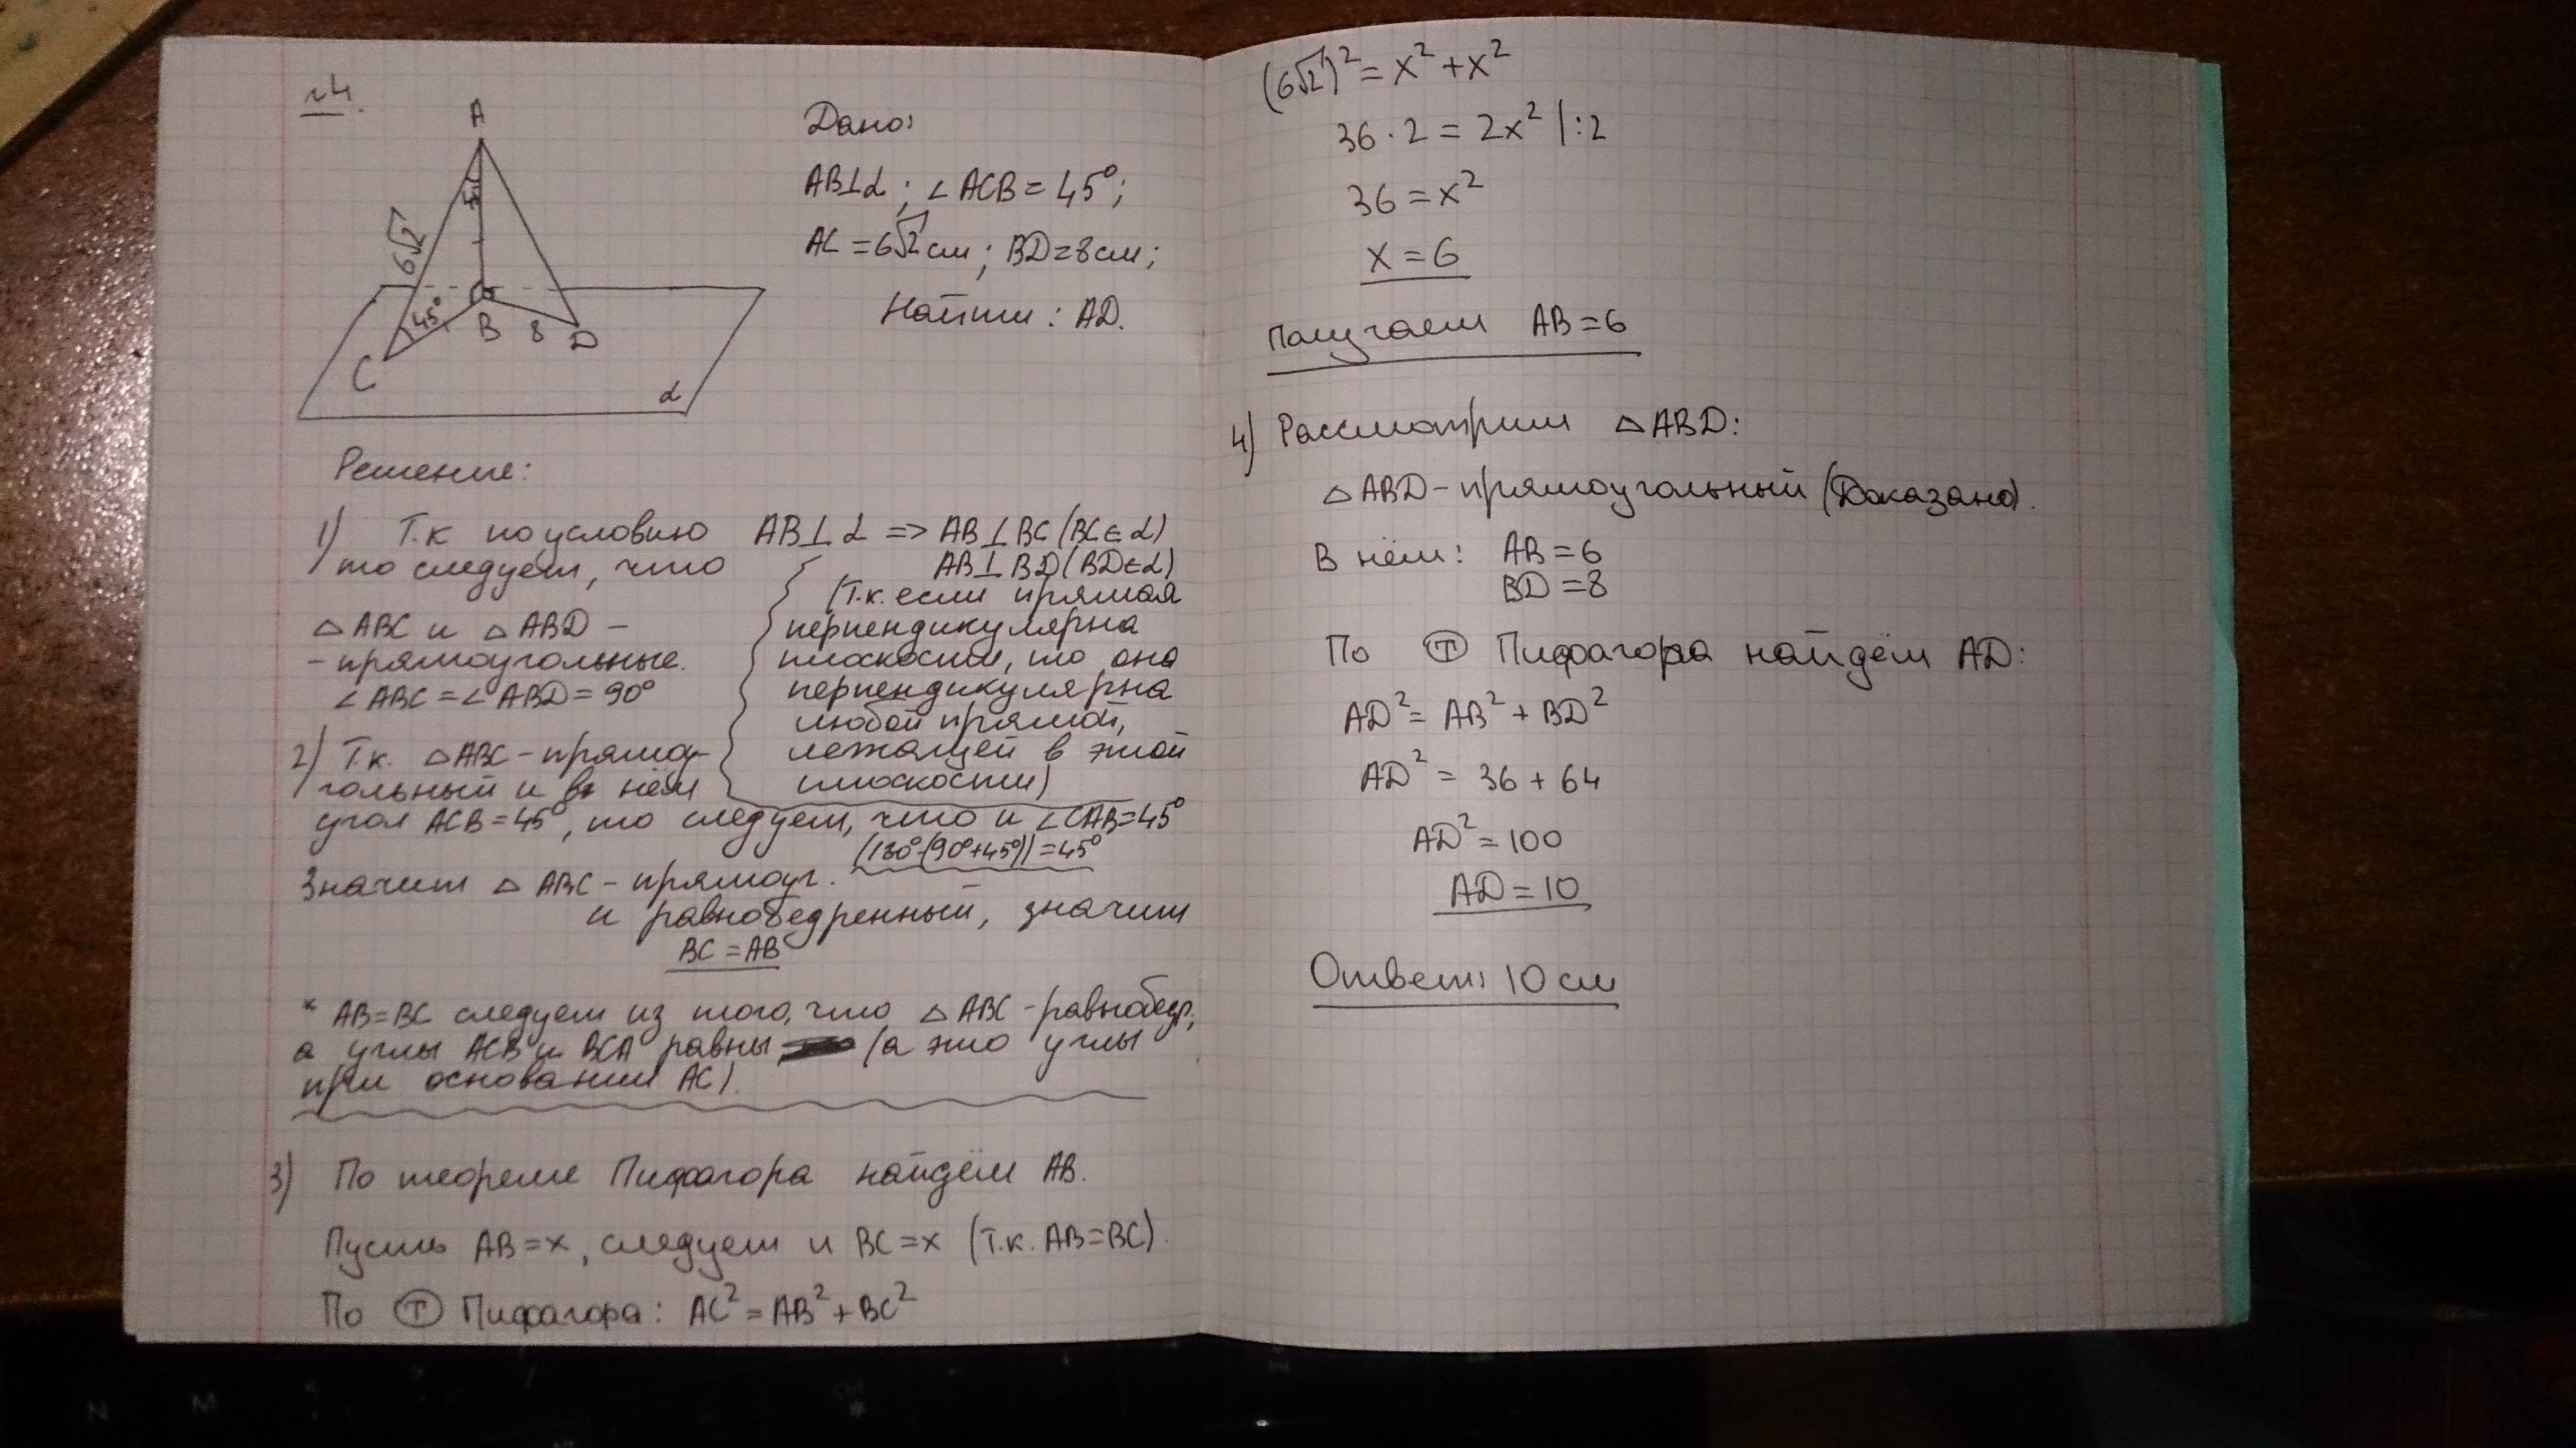 №4.
A
6√2
45°
45°
B
8
D
C
α
Дано:
AB⊥α; ∠ACB=45°;
AC=6√2см; BD=8см;
Найти: AD.
Решение:
1) Т.к по условию AB⊥α => AB⊥BC (BC∈α)
то следует, что AB⊥BD (BD∈α)
△ABC и △ABD –
– прямоугольные.
∠ABC=∠ABD=90°
(Т.к. если прямая
перпендикулярна
плоскости, то она
перпендикулярна
любой прямой,
лежащей в этой
плоскости)
2) Т.к. △ABC – прямоу-
гольный и в нём
угол ACB=45°, то следует, что и ∠CAB=45°
(180°-(90°+45°))=45°
Значит △ABC – прямоуг.
и равнобедренный, значит
BC=AB
* AB=BC следует из того, что △ABC – равнобедр.,
а углы ACB и BCA равны (а это углы
при основании AC).
3) По теореме Пифагора найдём AB.
Пусть AB=x, следует и BC=x (т.к. AB=BC).
По Ⓣ Пифагора: AC²=AB²+BC²
(6√2)²=x²+x²
36·2=2x² |:2
36=x²
x=6
Получаем AB=6
4) Рассмотрим △ABD:
△ABD – прямоугольный (Доказано).
В нём: AB=6
BD=8
По Ⓣ Пифагора найдём AD:
AD²=AB²+BD²
AD²=36+64
AD²=100
AD=10
Ответ: 10 см